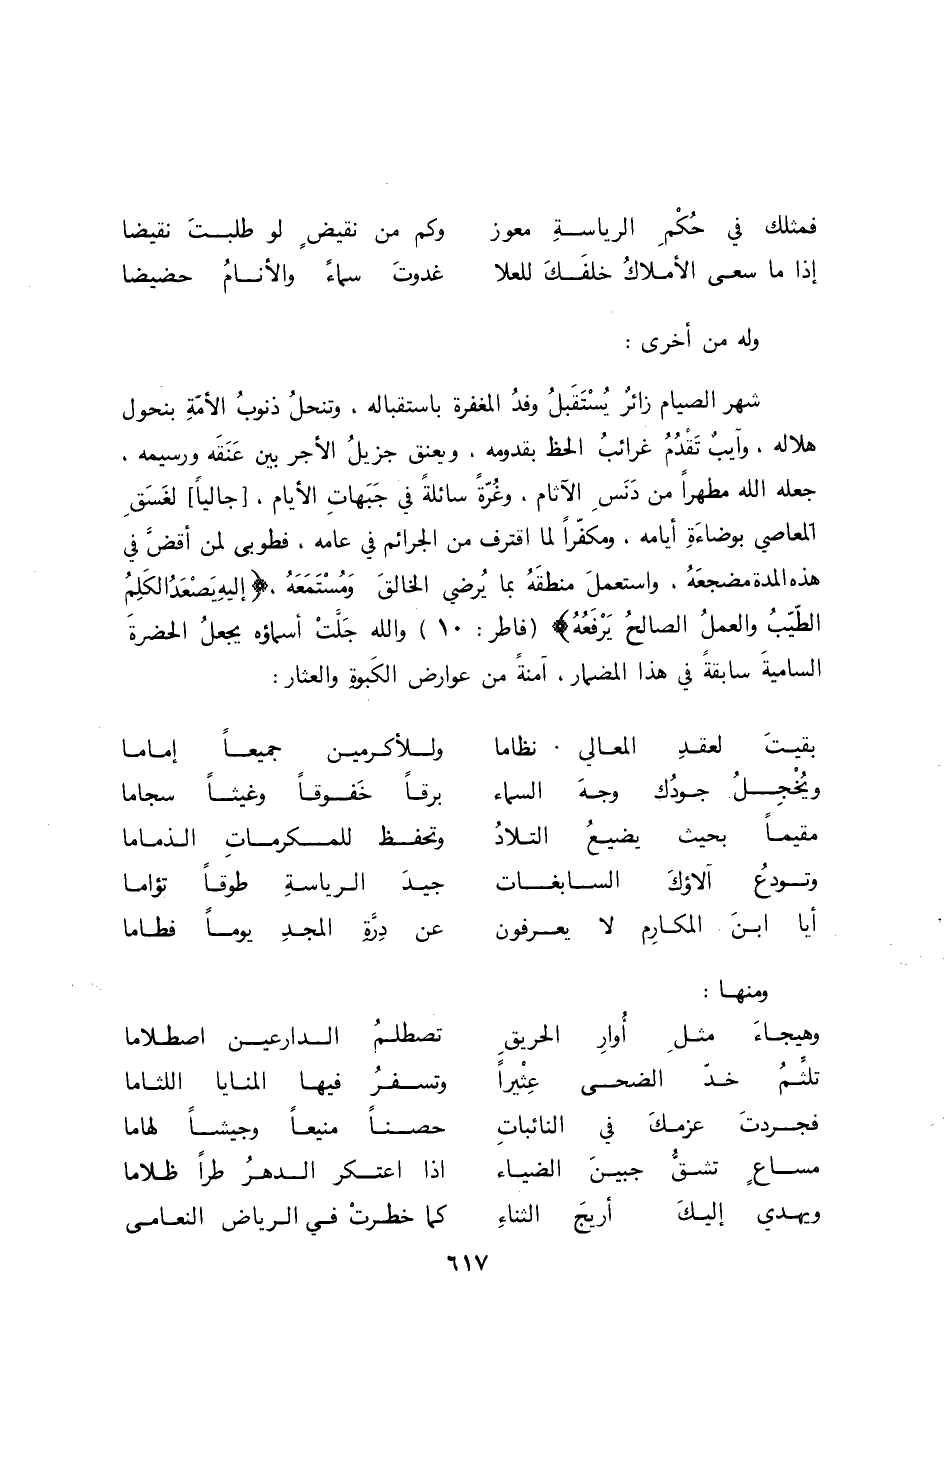 فمثلك في حُكْمِ الرياسةِ معوز وكم من نقيضٍ لو طلبتَ نقيضا
إذا ما سعى الأملاكُ خلفَكَ للعلا غدوتَ سماءً والأنامُ حضيضا
وله من أخرى :
شهر الصيام زائرٌ يُسْتَقبلُ وفدُ المغفرة باستقباله ، وتنحلُ ذنوبُ الأمّةِ بنحول
هلاله ، وآيبٌ تَقْدُمُ غرائبُ الحظ بقدومه ، ويعنق جزيلُ الأجر بين عَنَقَه ورسيمه ،
جعله الله مطهراً من دَنَسِ الآثام ، وغُرّةً سائلةً في جَبَهاتِ الأيام ، [جالياً] لغَسَقِ
المعاصي بوضاءَةِ أيامه ، ومكفّراً لما اقترف من الجرائم في عامه ، فطوبى لمن أقضَّ في
هذه المدة مضجعَهُ ، واستعملَ منطقَهُ بما يُرضي الخالقَ وَمُسْتَمَعَهُ ، ﴿إليهِ يَصْعَدُ الكَلِمُ
الطّيّبُ والعملُ الصالحُ يَرْفَعُهُ﴾ (فاطر : ١٠) والله جَلَّتْ أسماؤه يجعلُ الحضرةَ
الساميةَ سابقةً في هذا المضمار ، آمنةً من عوارض الكَبوةِ والعثار :
بقيتَ لعقدِ المعالي نظاما وللأكرمين جميعاً إماما
ويُخْجِلُ جودُك وجهَ السماء برقاً خَفوقاً وغيثاً سجاما
مقيماً بحيث يضيعُ التلادُ وتحفظ للمكرماتِ الذماما
وتودعُ آلاؤكَ السابغات جيدَ الرياسةِ طوقاً تؤاما
أيا ابنَ المكارِم لا يعرفون عن دِرَّةِ المجدِ يوماً فطاما
ومنها :
وهيجاءَ مثلِ أُوارِ الحريقِ تصطلمُ الدارعين اصطلاما
تلثّمُ خدّ الضحى عِثْيراً وتسفرُ فيها المنايا اللثاما
فجردتَ عزمكَ في النائباتِ حصناً منيعاً وجيشاً لهاما
مساعٍ تشقُّ جبينَ الضياء اذا اعتكر الدهرُ طراً ظلاما
ويهدي إليكَ أريجَ الثناءِ كما خطرتْ في الرياض النعامى
٦١٧